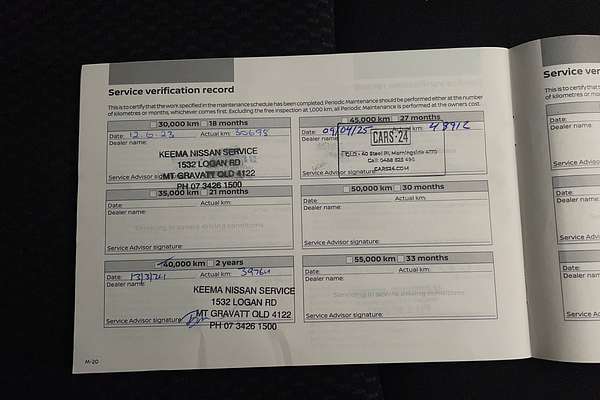 Service verification record
This is to certify that the work specified in the maintenance schedule has been completed. Periodic Maintenance should be performed either at the number
of kilometres or months, whichever comes first. Excluding the free inspection at 1,000 km, all Periodic Maintenance is performed at the owners cost.
30,000 km 18 months
Date: 12.6.23 Actual km:
Dealer name:
KEEMA NISSAN SERVICE
1532 LOGAN RD
MT GRAVATT QLD 4122
PH 07 3426 1500
Service Advisor signature:
35,000 km 21 months
Date: Actual km:
Dealer name:
Service Advisor signature:
40,000 km 2 years
Date: 13/3/24 Actual km:
Dealer name:
KEEMA NISSAN SERVICE
1532 LOGAN RD
MT GRAVATT QLD 4122
PH 07 3426 1500
Service Advisor signature:
45,000 km 27 months
Date: 09/04/25 km: 48912
Dealer name:
CARS24
QLD - 40 Steel Pl, Morningside 4170
CARS24.COM
Service Advisor signature:
50,000 km 30 months
Date: Actual km:
Dealer name:
Service Advisor signature:
55,000 km 33 months
Date: Actual km:
Dealer name:
Service Advisor signature:
M-20
Service ver
This is to certify that
of kilometres or mon
Date:
Dealer name:
Service Advisor s
Date:
Dealer name:
Service Advisor
Date:
Dealer name:
Service Advisor